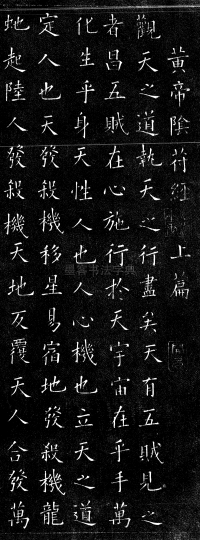 黃帝陰符經上篇
觀天之道執天之行盡矣天有五賊見之
者昌五賊在心施行於天宇宙在乎手萬
化生乎身天性人也人心機也立天之道
定人也天發殺機移星易宿地發殺機龍
虵起陸人發殺機天地反覆天人合發萬
书法字典